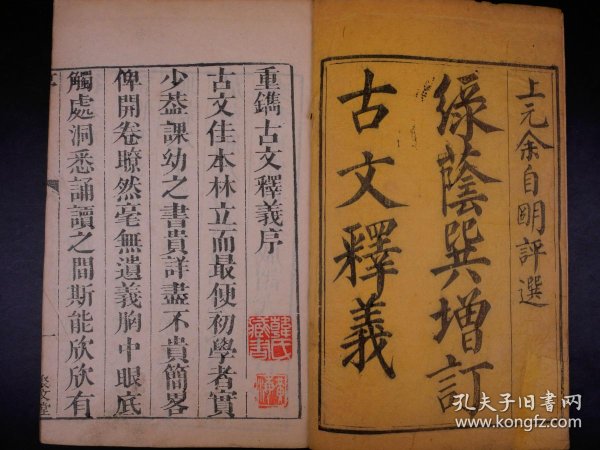 上元余自明評選
綠蔭巽增訂
古文釋義
重鐫古文釋義序
古文佳本林立而最便初學者實
少葢課幼之書貴詳盡不貴簡畧
俾開卷瞭然毫無遺義胸中眼底
觸處洞悉誦讀之間斯能欣欣有
序
一
韓氏
藏書
孔夫子旧书网
www.kongfz.com